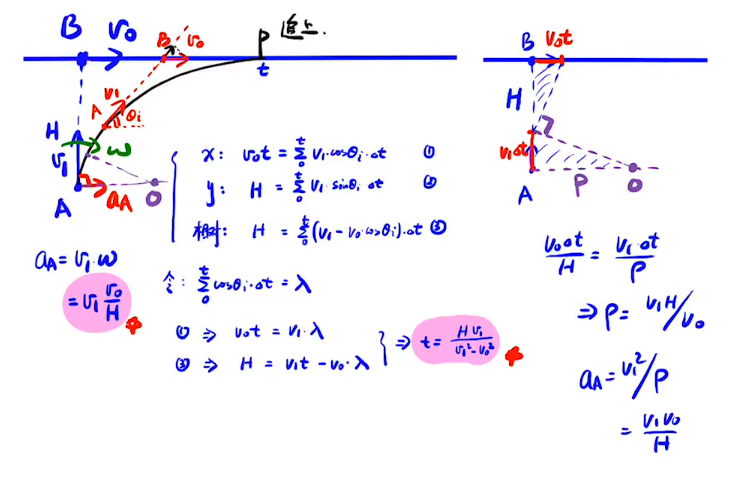 B v₀
B v₀
P 追上.
t
A v₁ θi
H
v₁ ω
A a_A O
x: v₀t = Σ₀ᵗ v₁·cosθi·Δt ①
y: H = Σ₀ᵗ v₁·sinθi·Δt ②
相对: H = Σ₀ᵗ (v₁ - v₀·cosθi)·Δt ③
a_A = v₁·ω
= v₁ v₀/H
令: Σ₀ᵗ cosθi·Δt = λ
① ⇒ v₀t = v₁·λ
③ ⇒ H = v₁t - v₀·λ
⇒ t = Hv₁/(v₁²-v₀²)
B v₀Δt
H
v₁Δt
A ρ O
v₀Δt/H = v₁Δt/ρ
⇒ ρ = v₁H/v₀
a_A = v₁²/ρ
= v₁v₀/H